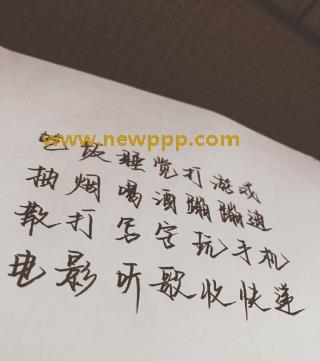 吃饭睡觉打游戏
www.newppp.com
抽烟喝酒蹦蹦迪
散打写字玩手机
电影听歌收快递